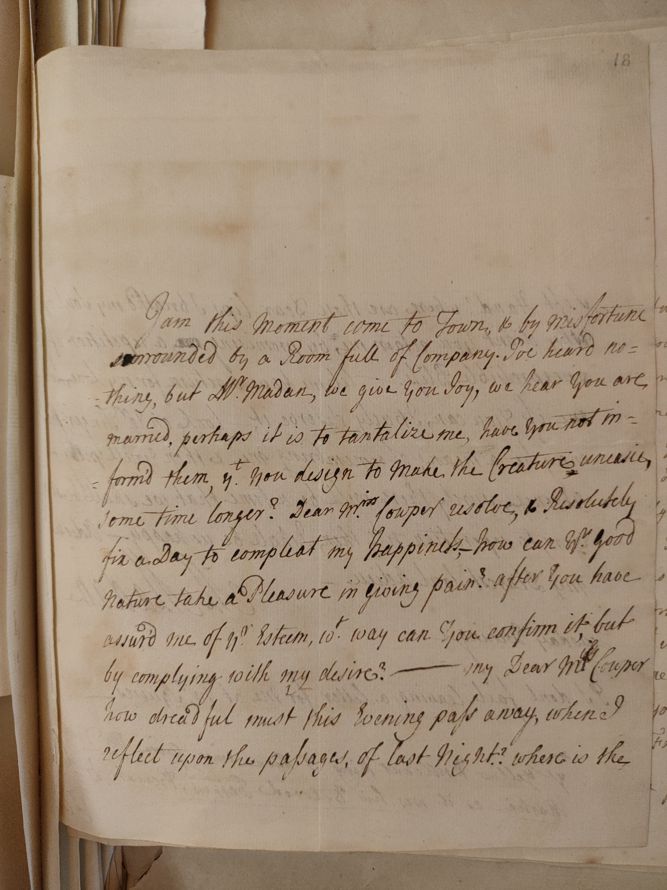 18
I am this Moment come to Town, & by misfortune
surrounded by a Room full of Company. I've heard no=
=thing, but Mr. Madan, we give You Joy, we hear You are
married, perhaps it is to tantalize me, have You not in=
=form'd them, yt. You design to make the Creature uneasie,
some time longer? Dear Mrs. Cowper resolve, & Resolutely
fix a Day to compleat my happiness,— how can yr. good
Nature take a Pleasure in giving pain? after You have
assur'd me of yr. Esteem, wt. way can You confirm it, but
by complying with my desire? —— my Dear Mrs. Cowper
how dreadful must this Evening pass away, when I
reflect upon the passages, of last Night? where is the